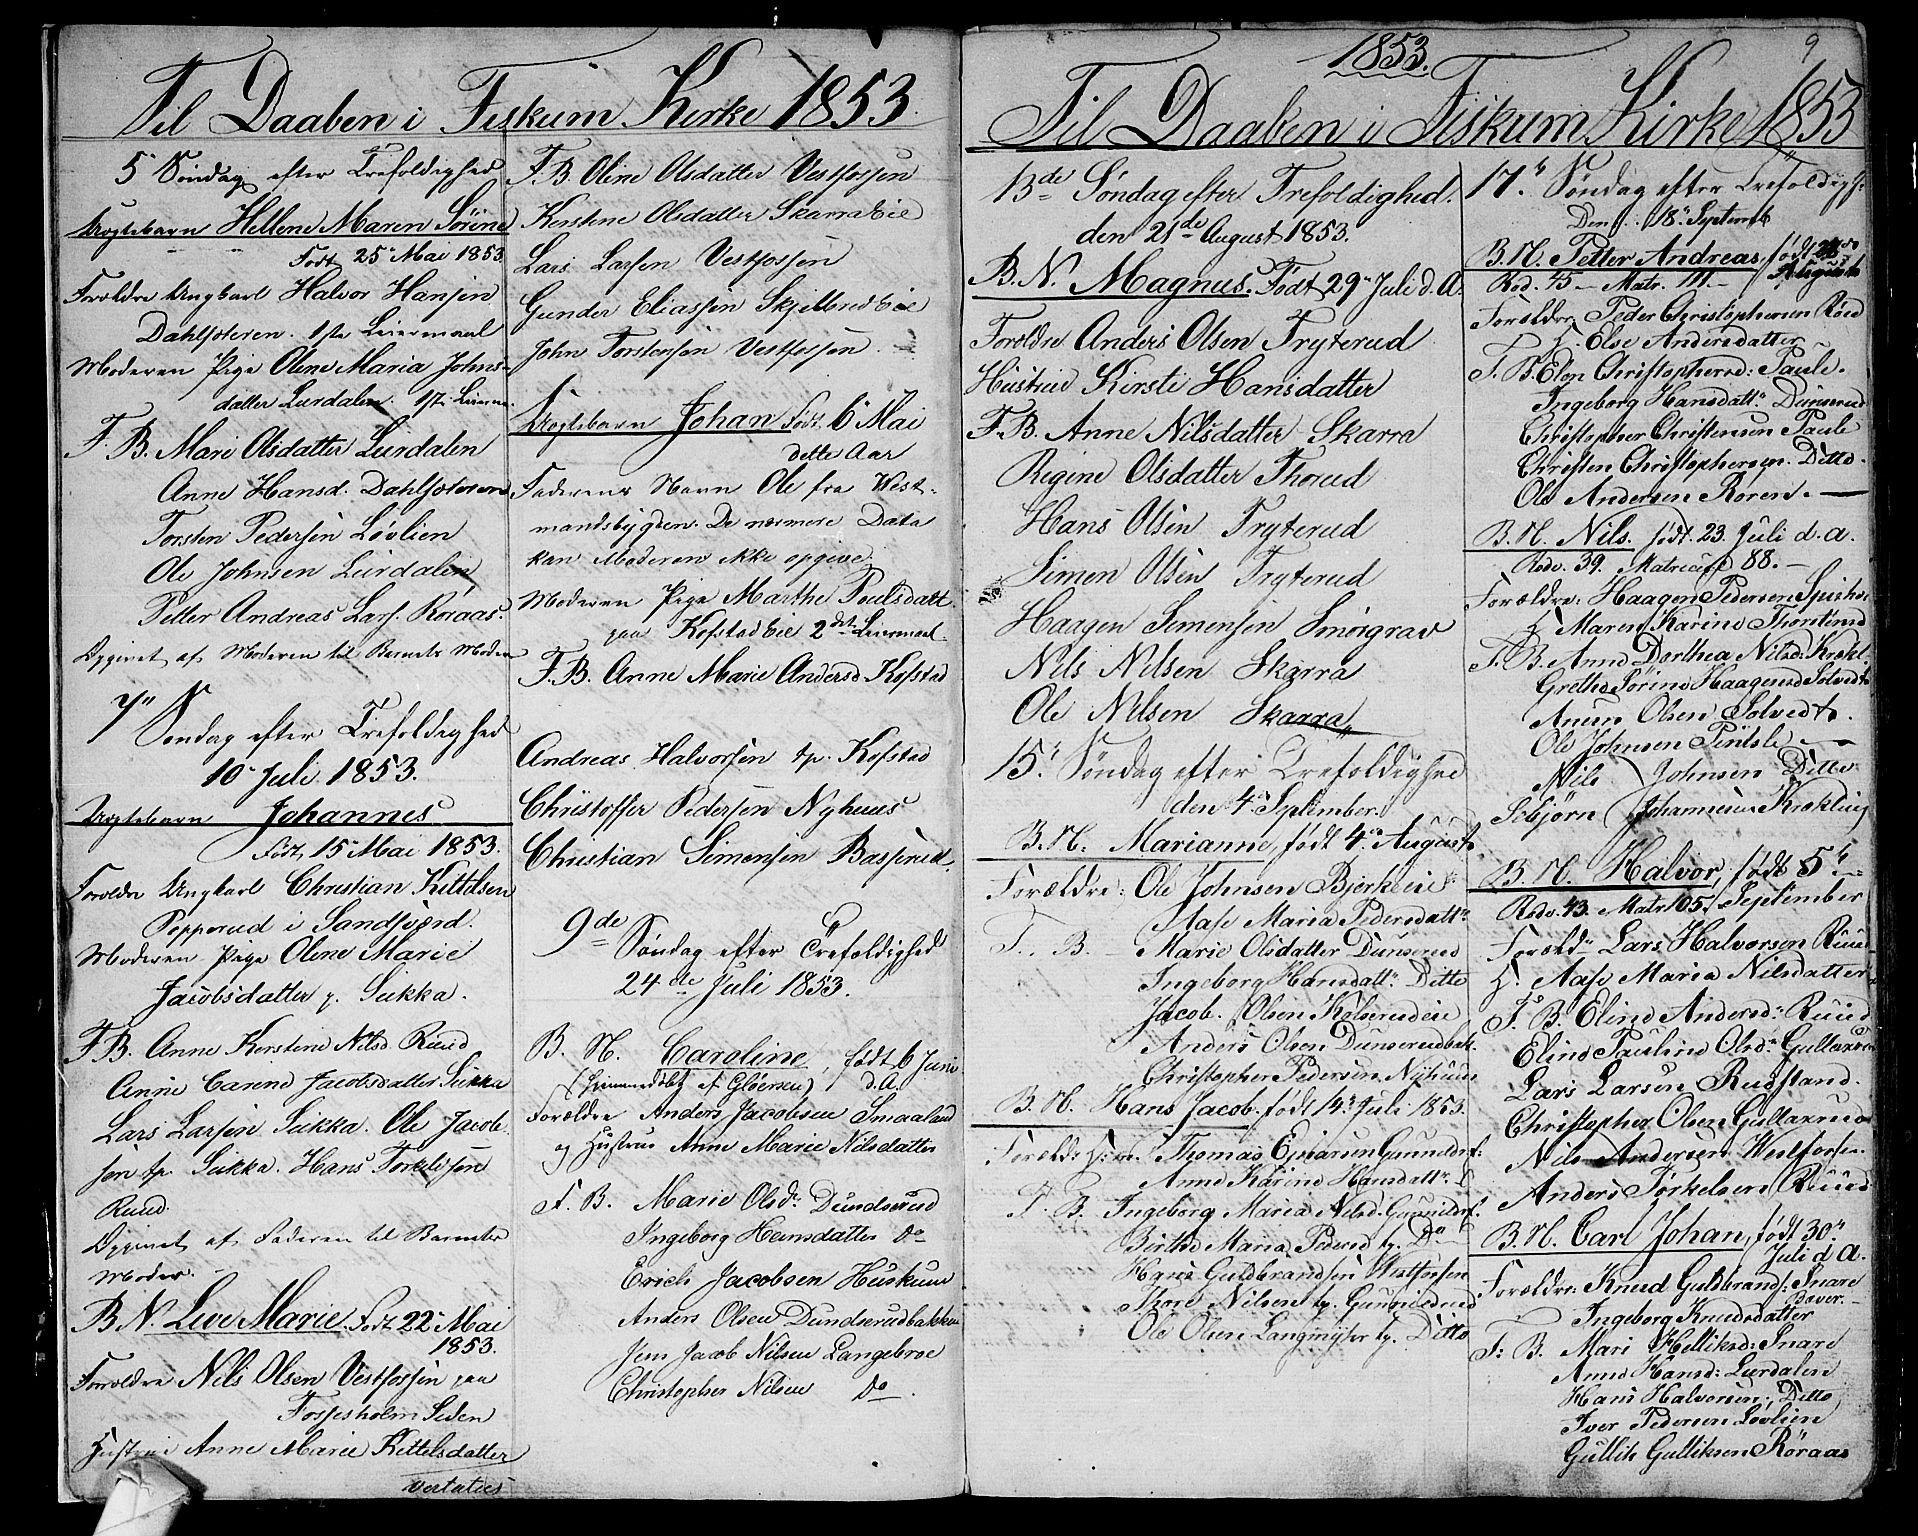 Til Daaben i Fiskum Kirke 1853.
5 Søndag efter Trefoldighed
Uægtebarn Hellene Maren Sørine
Født 25 Mai 1853
Forældre Ungkarl Halvor Hansen
Dahlsæteren. 1ste Leiermaal
Moderen Pige Olene Maria Johns-
datter Lurdalen. 1ste Leierm.
F. B. Mari Olsdatter Lurdalen
Anne Hansd. Dahlsæteren
Torsten Pedersen Løvlien
Ole Johnsen Lurdalen
Petter Andreas Lars. Roraas.
Opgivet af Moderen til Barnets Moder
7de Søndag efter Trefoldighed
10 Juli 1853.
Uægtebarn Johannes
Født 15 Mai 1853.
Forældre Ungkarl Christian Kittelsen
Pepperud i Sandsværd.
Moderen Pige Olene Marie
Jacobsdatter p. Sukka.
F.B. Anne Kerstine Nilsd. Ruud
Anne Carine Jacobsdatter Sukka
Lars Larsen Sukka. Ole Jacob-
sen tp. Sukka. Hans Torkelsen
Ruud.
Opgivet af Faderen til Barnets
Moder.
B. N. Live Marie. Født 22 Mai
1853.
Forældre Nils Olsen Vestfossen paa
Fossesholm Siden
Hustrue Anne Marie Kittelsdatter
vertatis
F. B. Oline Olsdatter Vestfossen
Kerstine Olsdatter Skarra Eie
Lars Larsen Vestfossen
Gunder Eliassen Skjelbred Eie
John Torstensen Vestfossen.
Uægtebarn Johan Født 6 Mai
dette Aar
Faderens Navn Ole fra Vest-
mandsbygden. De nærmere Data
kan Moderen ikke opgive.
Moderen Pige Marthe Poulsdatt.
paa Kofstad Eie 2det Leiermaal.
F. B. Anne Marie Andersd. Kofstad
Andreas Halvorsen tp. Kofstad
Christoffer Pedersen Nyhuus
Christian Simensen Basserud.
9de Søndag efter Trefoldighed
24de Juli 1853.
B. N. Caroline, født 6 Juni
(hjemmedøbt af Gløersen) d.A.
Forældre Anders Jacobsen Smaaland
og Hustrue Anne Marie Nilsdatter
F. B. Marie Olsdr. Dunserud
Ingeborg Hansdatter Do
Erich Jacobsen Huskum
Anders Olsen Dundserudbakken
Jens Jacob Nilsen Langebroe
Christopher Nilsen Do.
1853.
9
Til Daaben i Fiskum Kirke 1853
13de Søndag efter Trefoldighed.
den 21de August 1853.
B. N. Magnus. Født 29 Juli d. A.
Foreldre Anders Olsen Tryterud
Hustrue Kirsti Hansdatter
F. B. Anne Nilsdatter Skarra
Regine Olsdatter Thorud
Hans Olsen Tryterud
Simen Olsen Tryterud
Haagen Simensen Smørgrav
Nils Nilsen Skarra
Ole Nilsen Skarra
15. Søndag efter Trefoldighed
den 4de September.
B. N. Marianne, født 4de August
Forældre: Ole Johnsen Bjerkeie
Aase Maria Pedersdattr
F. B. Marie Olsdatter Dunserud
Ingeborg Hansdattr. Ditto
Jacob. Olsen Kolserudeie
Anders Olsen Dunserudbak.
Christopher Pedersen Nyhuus
B. N. Hans Jacob. født 14de Juli 1853.
Foræld: Thomas Gunnerud.
Anne Karine Hansdattr
F. B. Ingeborg Maria Nilsd. Gunnerud.
Birthe Maria Pedersd. tp. Do
Hans Guldbrandsen Vestfossen
Thore Nilsen tp. Gunnerud
Ole Olsen Langmyhr tp. Ditto
17de Søndag efter Trefoldigh:
Den 18. Septemb
B. N. Petter Andreas, født
August
Rod. 45 – Matr. 111. –
Forældre: Peder Christophersen Roed
H. Else Andersdatter
F. B. Elen Christophersd: Paule.
Ingeborg Hansdattr. Dunserud
Christopher Christensen Paule
Christen Christophersen. Ditto.
Ole Andersen Roren. –
B. N. Nils. født 23 Juli d. a.
Rodv. 39. Matricul 88. –
Forældre: Haagen Pedersen
H Maren Karine Thorstensd
F. B. Anne Dorthea Nilsd: Krekl.
Grethe Sørine Haagensd Solvedt
Anun Olsen Solvedt.
Ole Johnsen Pintsle –
Nils Johnsen Ditto
Sebjørn Johannesen Krekling
B. N. Halvor, født 5te
Rodv. 43. Matr 105. September
Foræld. Lars Halvorsen Ruud
H. Aase Maria Nilsdatter
F. B. Eline Andersd: Ruud
Eline Pauline Olsd. Gullaxrud
Lars Larsen Rudstand.
Christopher Olsen Gullaxrud
Nils Andersen Westfossen
Anders Torkelsen Ruud
B. N. Carl Johan, født 30.
Juli d A.
Forældre: Knud Guldbrands: Snare
Ingeborg Knudsdatter
F. B. Mari Helliksd: Snare
Anne Hansd: Lurdalen
Hans Halvorsen, Ditto
Iver Pedersen Løvlien
Gullik Gulliksen Röraas